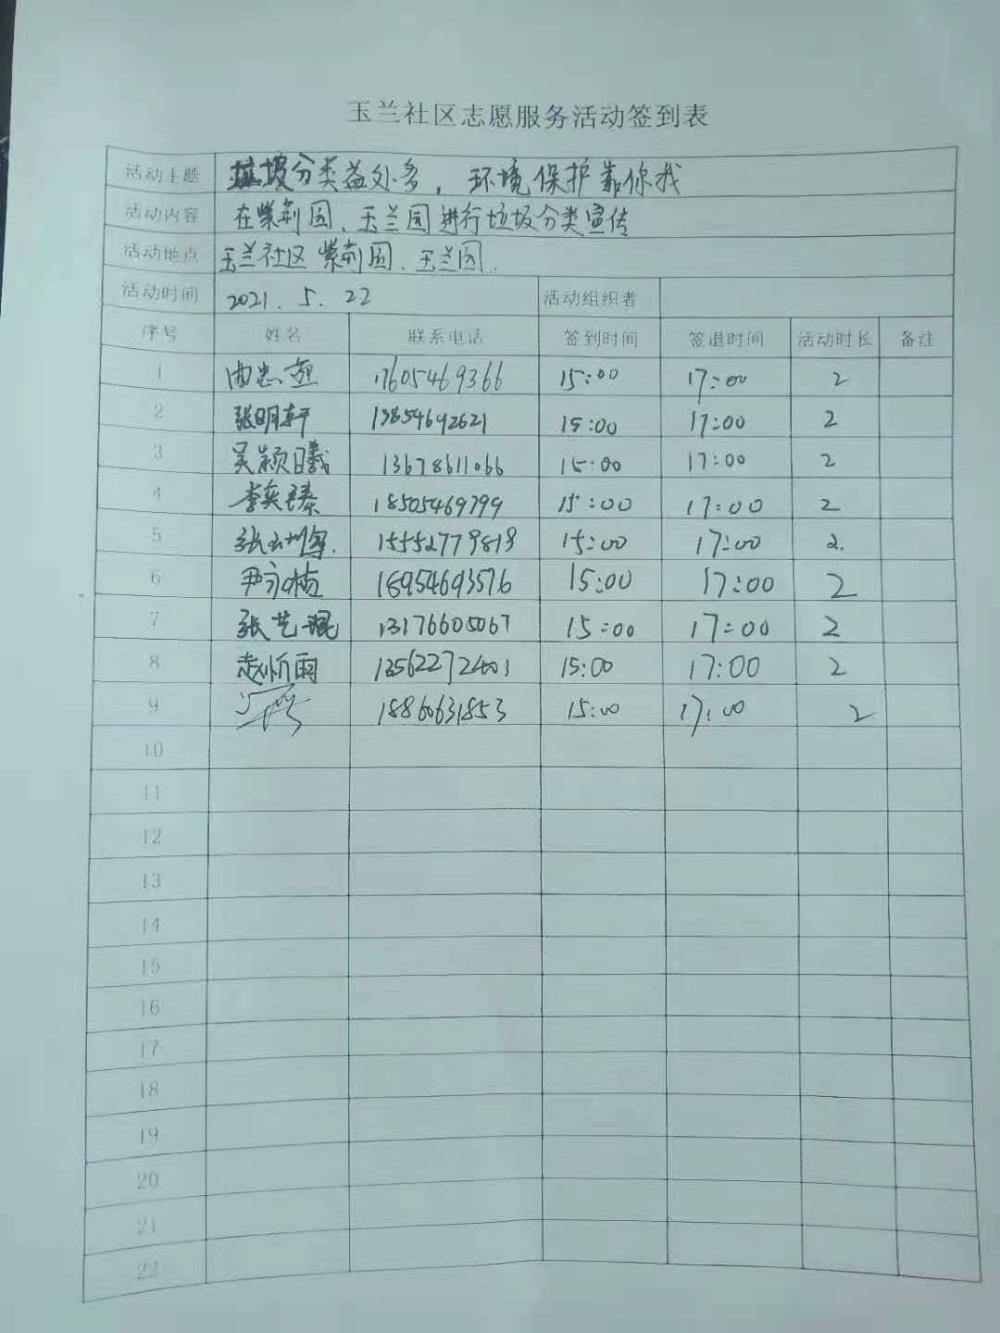 玉兰社区志愿服务活动签到表
活动主题 垃圾分类益处多，环境保护靠你我
活动内容 在紫荆园、玉兰园进行垃圾分类宣传
活动地点 玉兰社区 紫荆园、玉兰园.
活动时间 2021.5.22 活动组织者
序号 姓名 联系电话 签到时间 签退时间 活动时长 备注
1 17605469366 15:00 17:00 2
2 张明轩 13854642621 15:00 17:00 2
3 吴颖曦 13678611066 15:00 17:00 2
4 18505469799 15:00 17:00 2
5 15552779819 15:00 17:00 2.
6 尹永桢 18954693576 15:00 17:00 2
7 张艺琨 13176605067 15:00 17:00 2
8 赵忻雨 15:00 17:00 2
9 18860631853 15:00 17:00 2
10
11
12
13
14
15
16
17
18
19
20
21
22